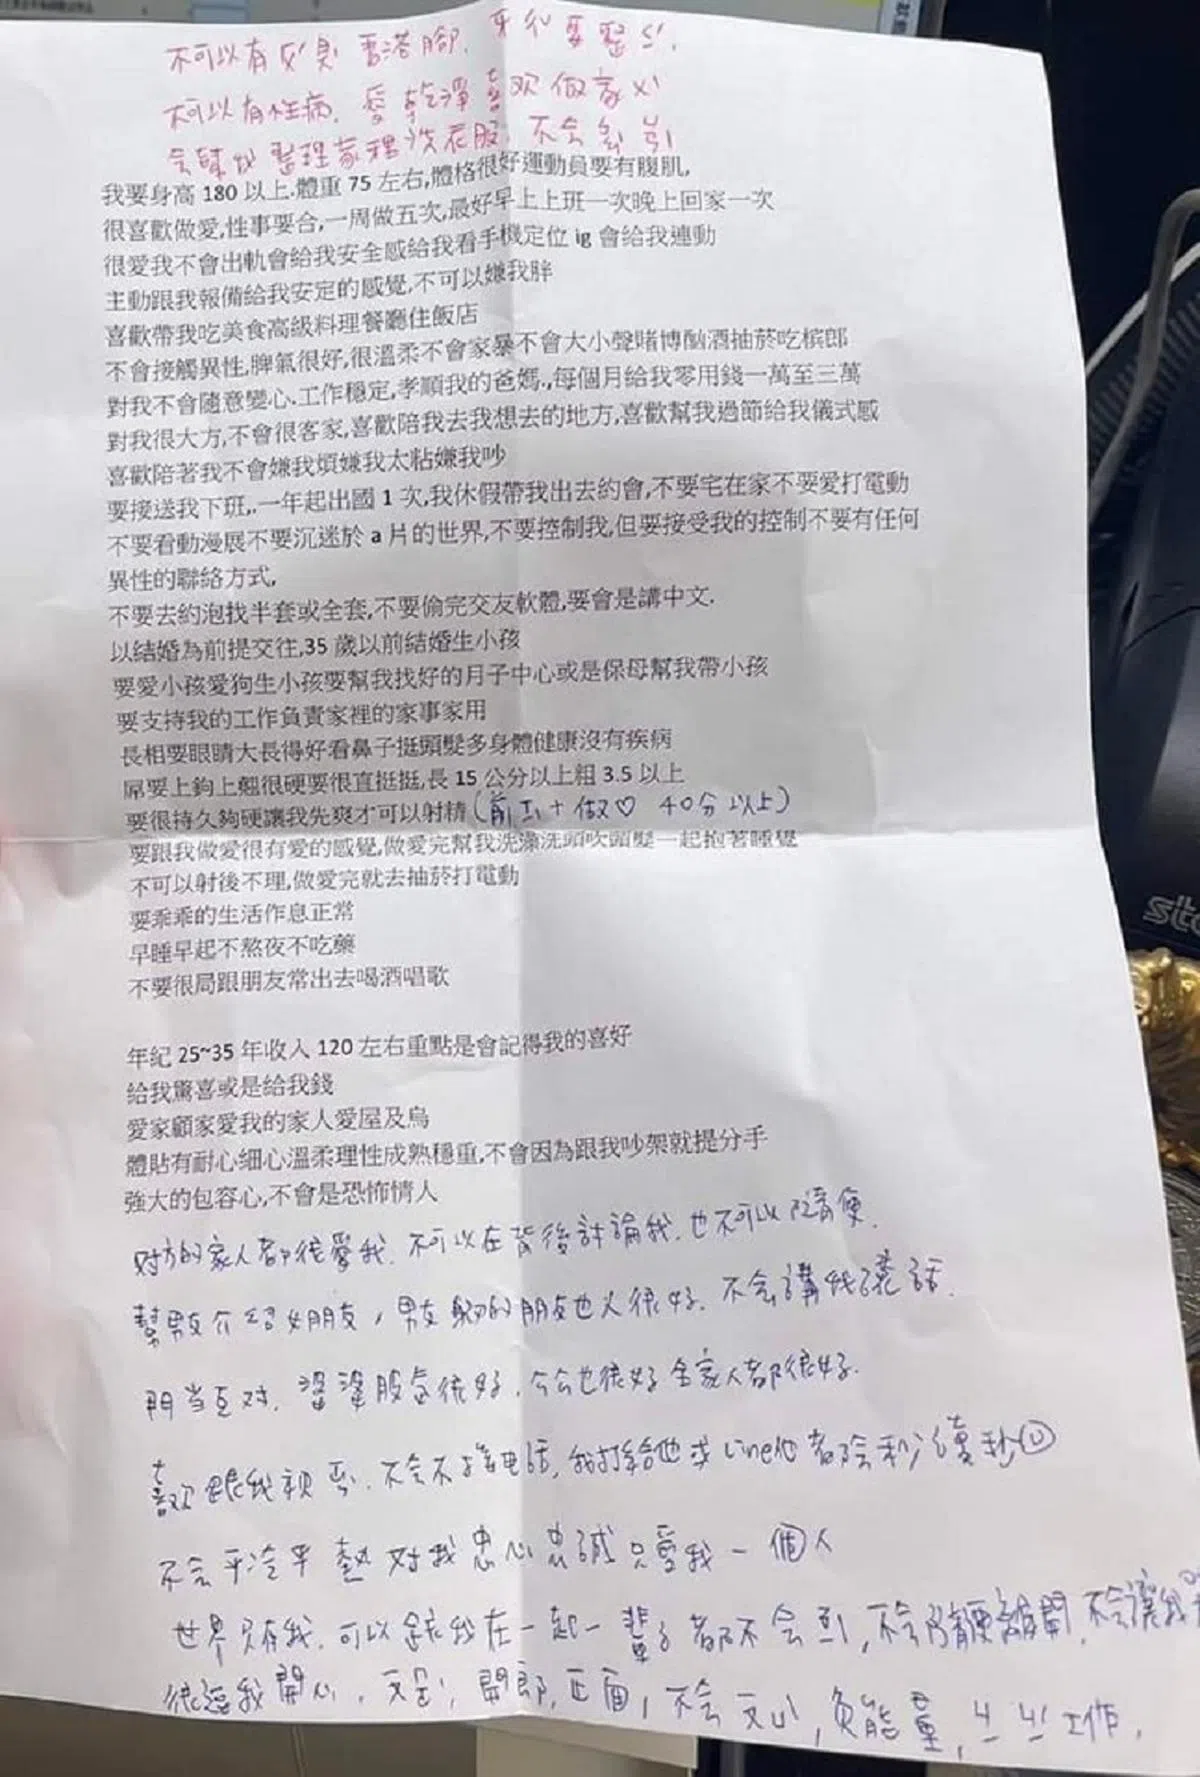 不可以有口臭 香港腳. 牙得要整ㄑ一.
不可以有性病. 愛乾淨喜欢做家ㄨ
会幫忙整理家裡洗衣服. 不会
我要身高 180 以上.體重 75 左右,體格很好運動員要有腹肌,
很喜歡做愛,性事要合,一周做五次,最好早上上班一次晚上回家一次
很愛我不會出軌會給我安全感給我看手機定位 ig 會給我連動
主動跟我報備給我安定的感覺,不可以嫌我胖
喜歡帶我吃美食高級料理餐廳住飯店
不會接觸異性,脾氣很好,很溫柔不會家暴不會大小聲賭博酗酒抽菸吃槟郎
對我不會隨意變心.工作穩定,孝順我的爸媽.,每個月給我零用錢一萬至三萬
對我很大方,不會很客家,喜歡陪我去我想去的地方,喜歡幫我過節給我儀式感
喜歡陪著我不會嫌我煩嫌我太粘嫌我吵
要接送我下班,.一年起出國 1 次,我休假帶我出去約會,不要宅在家不要愛打電動
不要看動漫展不要沉迷於 a 片的世界,不要控制我,但要接受我的控制不要有任何
異性的聯絡方式,
不要去約泡找半套或全套,不要偷完交友軟體,要會是講中文.
以結婚為前提交往,35 歲以前結婚生小孩
要愛小孩愛狗生小孩要幫我找好的月子中心或是保母幫我帶小孩
要支持我的工作負責家裡的家事家用
長相要眼睛大長得好看鼻子挺頭髮多身體健康沒有疾病
屌要上鉤上翹很硬要很直挺挺,長 15 公分以上粗 3.5 以上
要很持久夠硬讓我先爽才可以射精 (前ㄒㄧ + 做♡ 40分以上)
要跟我做愛很有愛的感覺,做愛完幫我洗澡洗頭吹頭髮一起抱著睡覺
不可以射後不理,做愛完就去抽菸打電動
要乖乖的生活作息正常
早睡早起不熬夜不吃藥
不要很局跟朋友常出去喝酒唱歌
年紀 25~35 年收入 120 左右重點是會記得我的喜好
給我驚喜或是給我錢
愛家顧家愛我的家人愛屋及烏
體貼有耐心細心溫柔理性成熟穩重,不會因為跟我吵架就提分手
強大的包容心,不會是恐怖情人
对方的家人都很愛我. 不可以在背後討論我. 也不可以隨便.
幫男友介紹女朋友, 男友的朋友也人很好. 不会講我壞話.
門当互对. 婆婆脾气很好. 公公也很好 全家人都很好.
喜欢跟我視ㄒㄩㄣ. 不会不接电話, 我打給他或 Line他都会秒讀秒回
不会乎冷乎熱 对我忠心忠誠 只愛我一個人
世界只有我. 可以跟我在一起一輩子都不会, 不会隨便離開. 不会讓我
很逗我開心, 天, 開郎, 正面, 不会, 負能量, 工作.